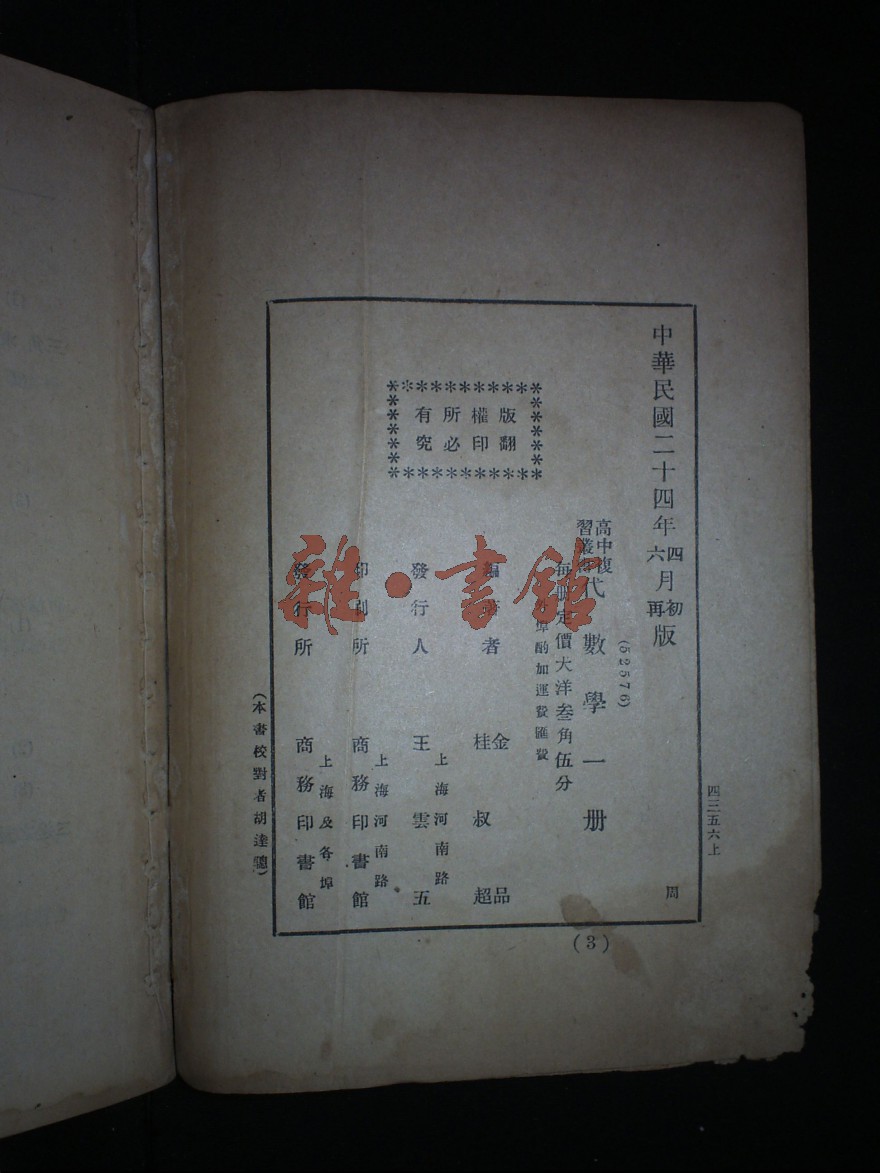 中華民國二十四年四月初版
六月再版
(52576)
高中復習叢書
代數學一册
每冊定價大洋叁角伍分
外埠酌加運費匯費
版權所有
翻印必究
編著者 金品
桂叔超
發行人 王雲五
上海河南路
印刷所 商務印書館
上海河南路
發行所 商務印書館
上海及各埠
(本書校對者胡達聰)
四三五六上
周
(3)
雜·書館